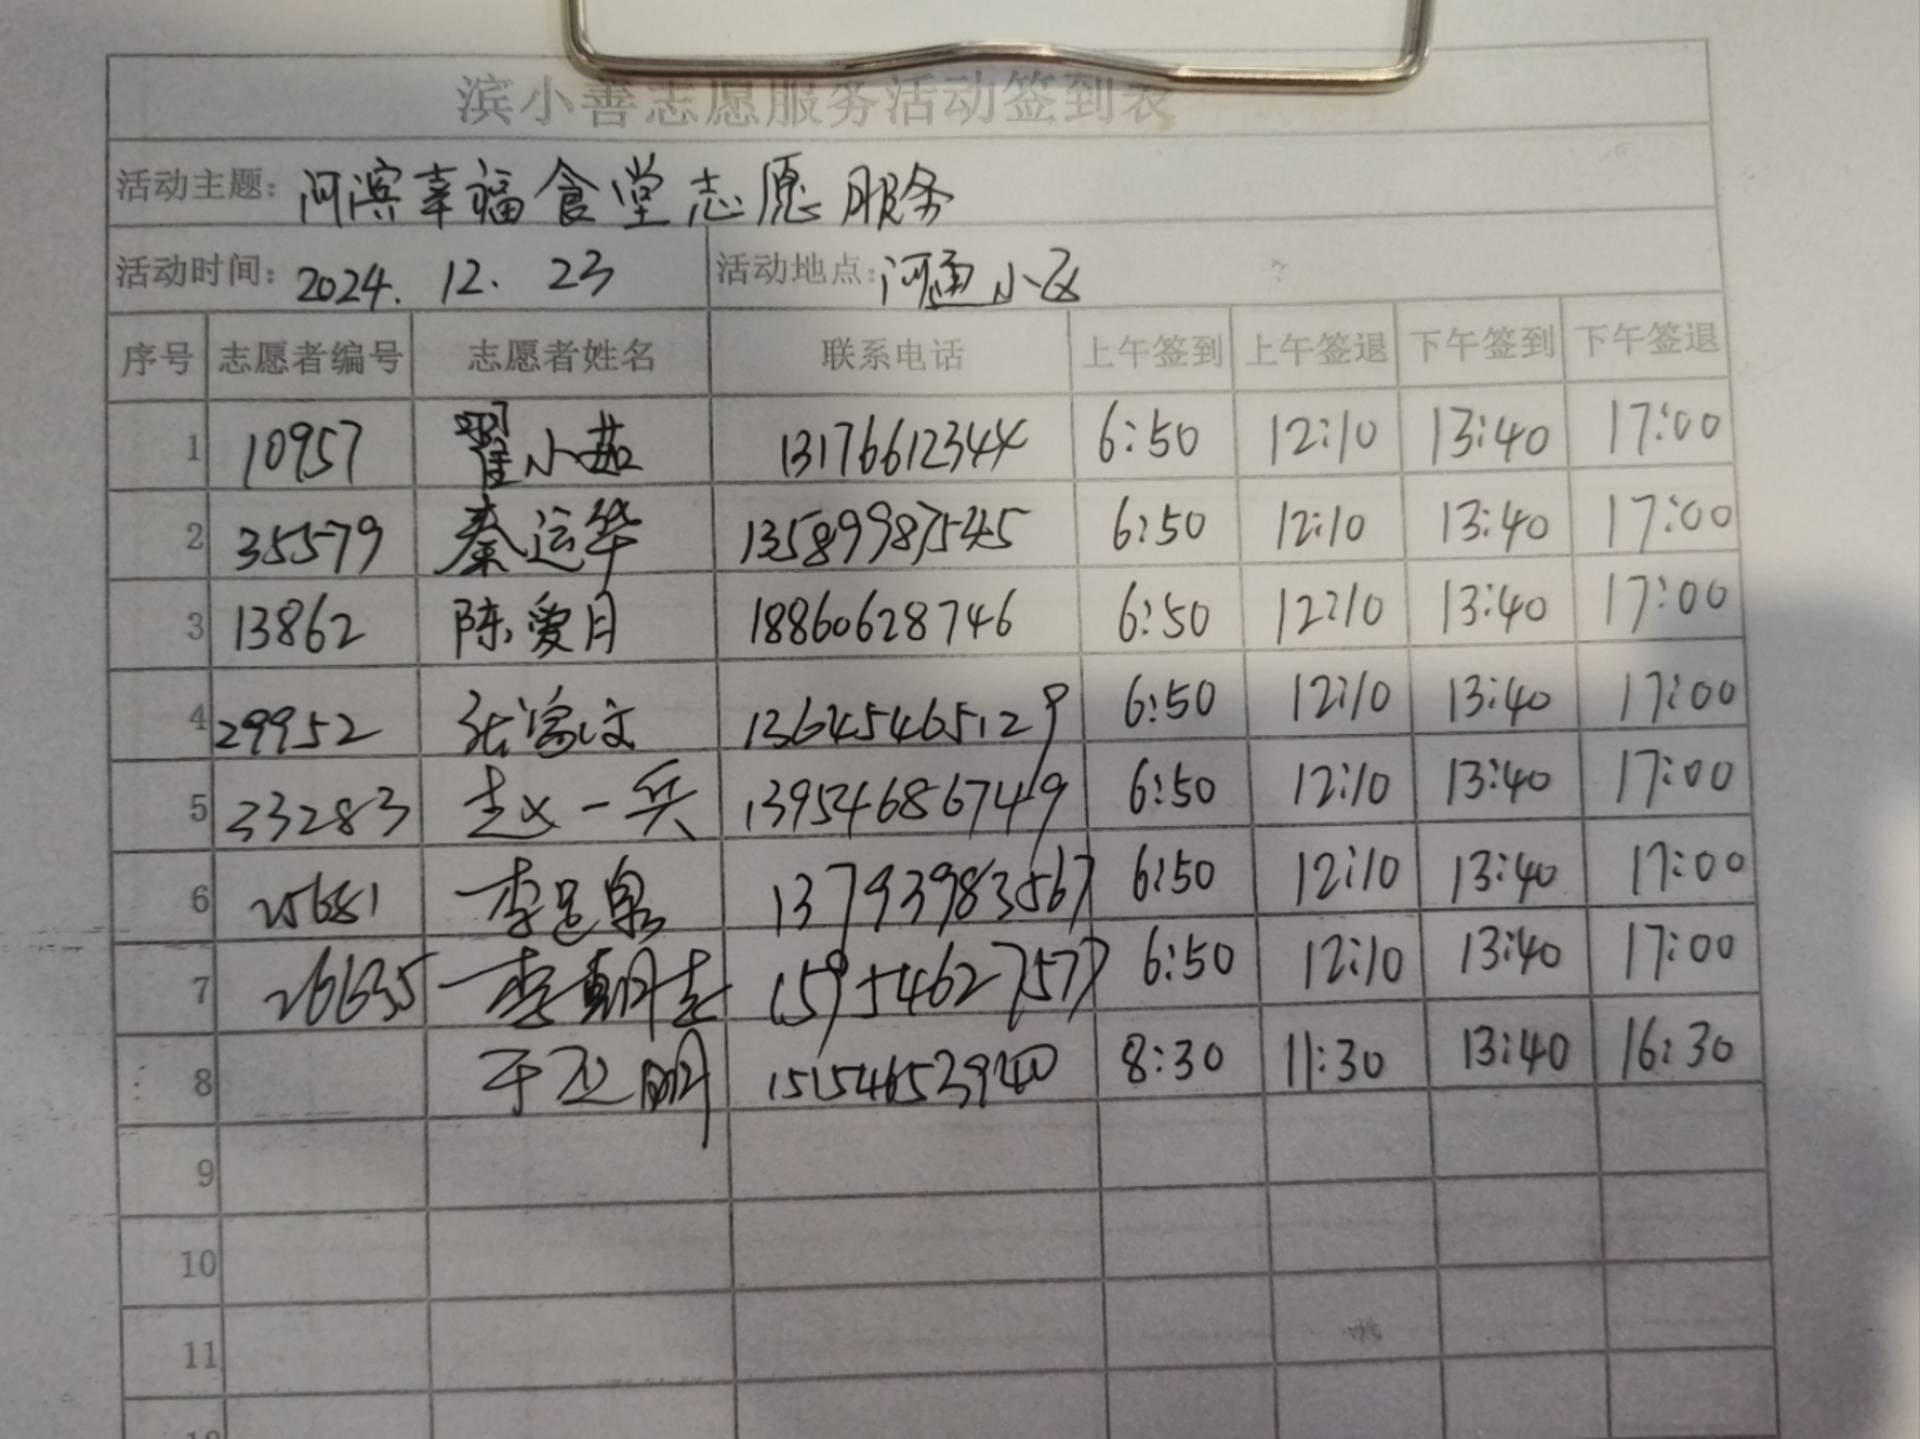 滨小善志愿服务活动签到表
活动主题: 河滨幸福食堂志愿服务
活动时间: 2024. 12. 23 活动地点: 河通小区
序号 志愿者编号 志愿者姓名 联系电话 上午签到 上午签退 下午签到 下午签退
1 10957 翟小茹 13176612344 6:50 12:10 13:40 17:00
2 35579 秦运华 13589987545 6:50 12:10 13:40 17:00
3 13862 陈爱月 18860628746 6:50 12:10 13:40 17:00
4 29952 张富文 13645465129 6:50 12:10 13:40 17:00
5 33283 赵一兵 13954686749 6:50 12:10 13:40 17:00
6 25681 李 13793983567 6:50 12:10 13:40 17:00
7 26635 李朝 15954627577 6:50 12:10 13:40 17:00
8 于 明 8:30 11:30 13:40 16:30
9
10
11